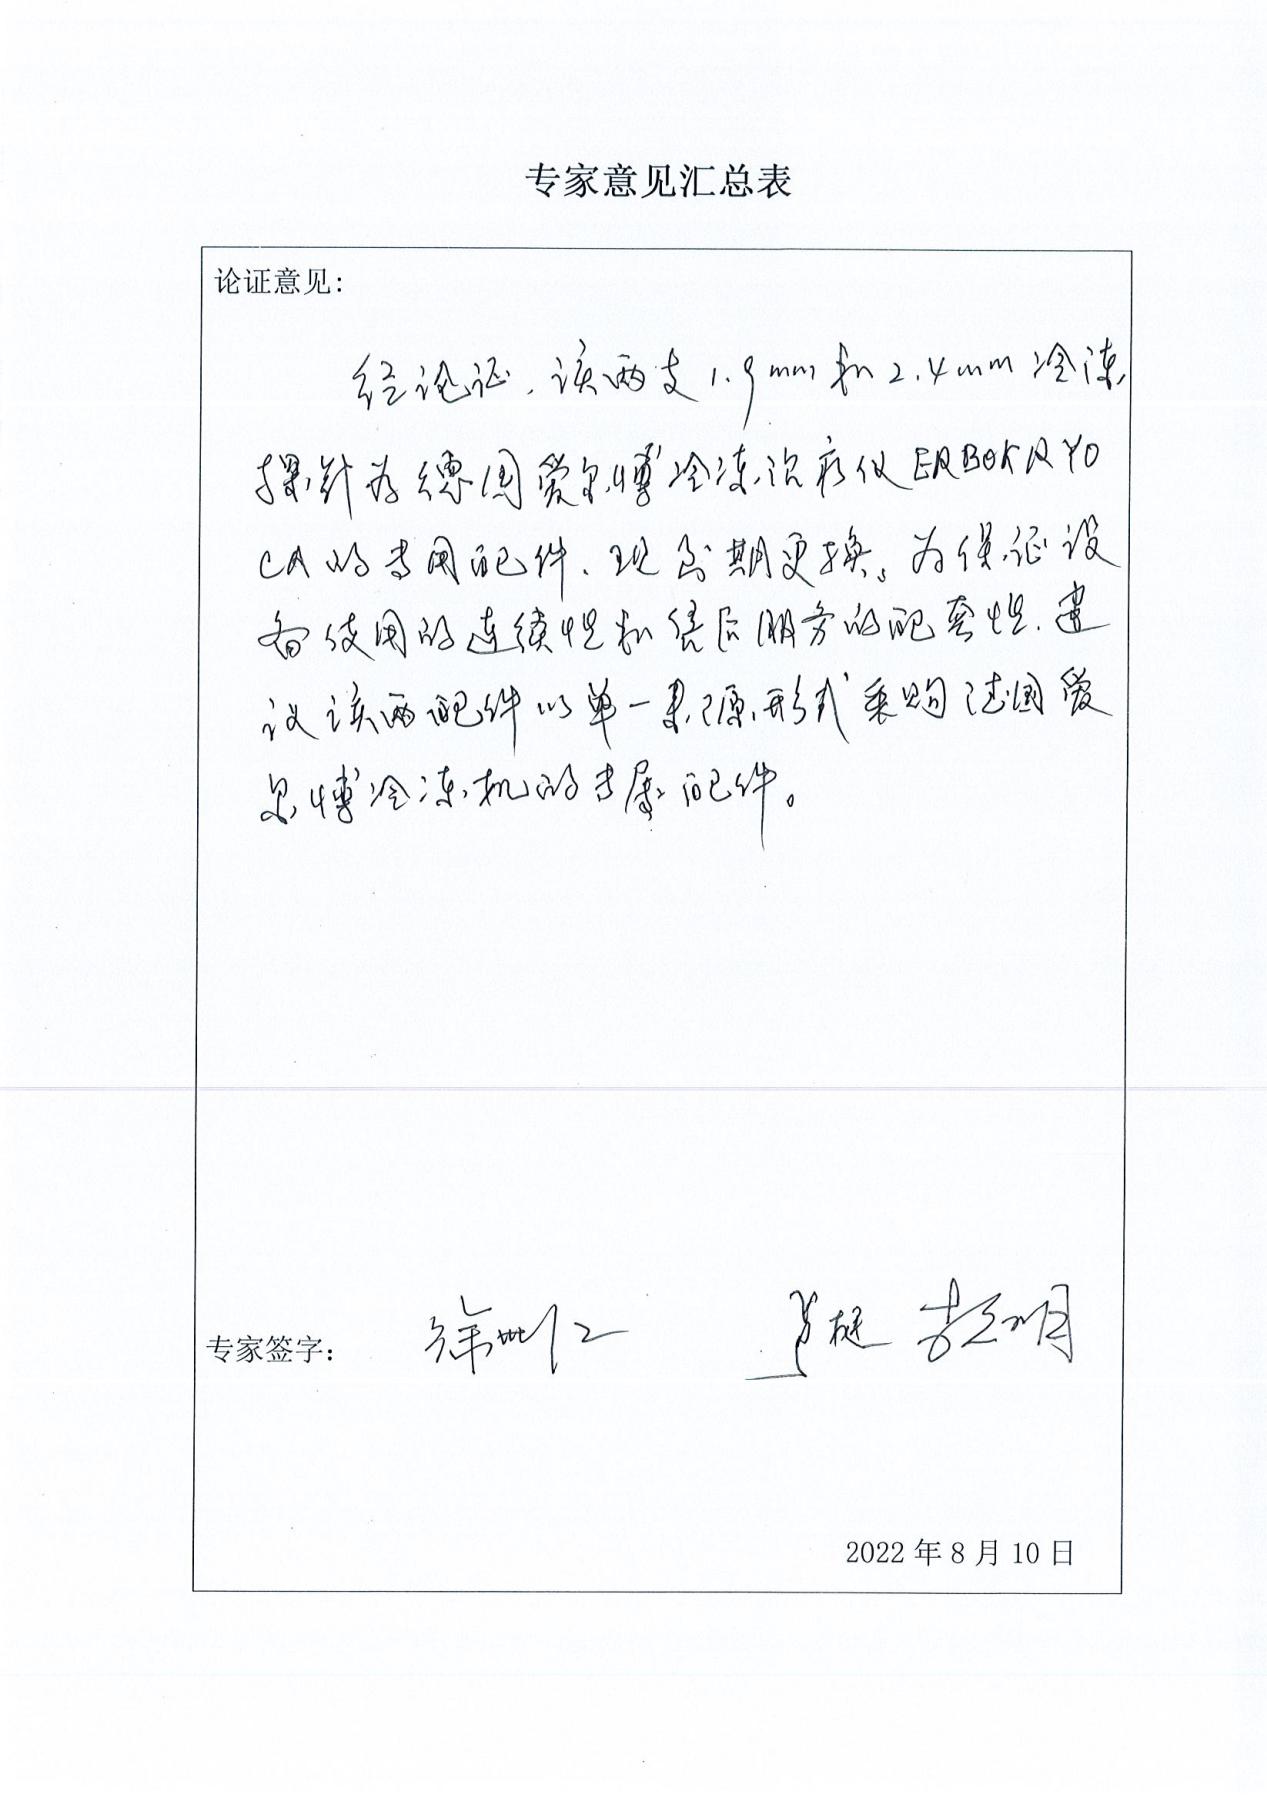 专家意见汇总表
论证意见:
经论证,该两支1.9mm和2.4mm冷冻
探针为德国爱尔博冷冻治疗仪ERBOKRYO
CA的专用配件、现到期更换。为保证设
备使用的连续性和售后服务的配套性,建
议该两配件以单一来源形式采购德国爱
尔博冷冻机的专属配件。
专家签字:
2022年8月10日